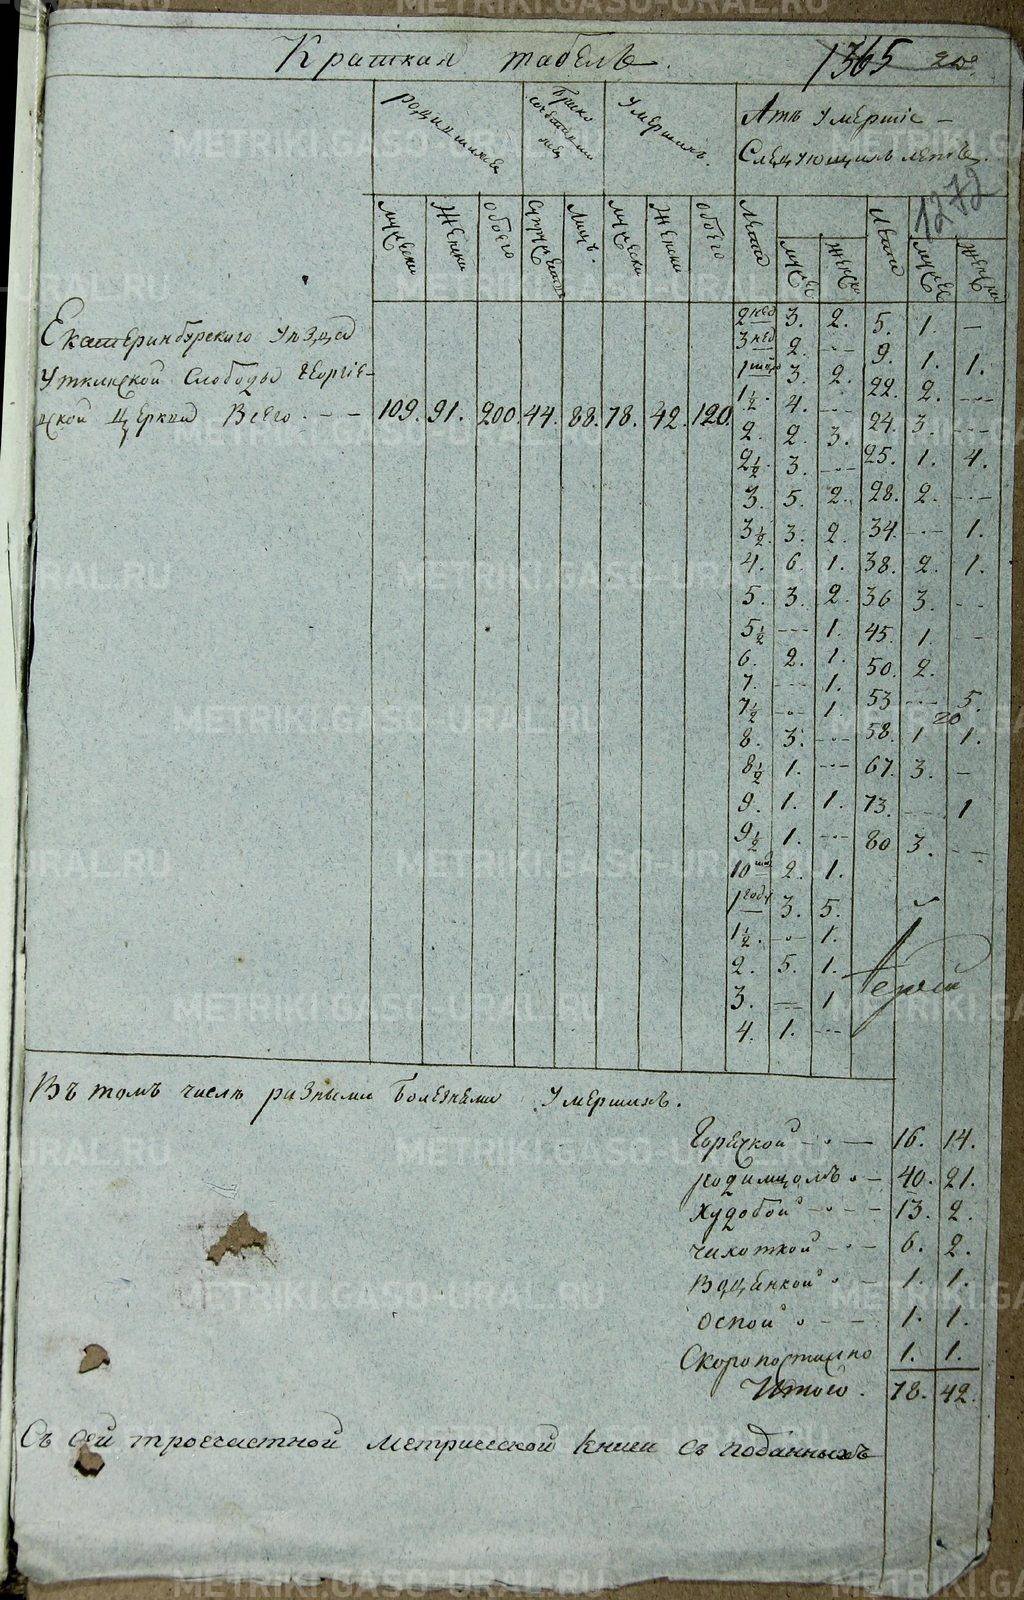 Краткая табель. 1365
1272
родившихся
Умершихъ.
Атъ Умершiе -
Следующихъ летъ.
Мужеска Женска обоего Лицъ. Мужеска Женска обоего Лета Лета
Мужес Женска Мужес Женска
2 нед 3. 2. 5. 1. -
3 нед 2. --- 9. 1. 1.
1 3. 2. 22. 2. ---
1 1/2 4. --- 24. 3. ---
Екатеринбурскаго Уезда
Уткинской Слободы Георгiе-
вской Церкви Всего. - - 109. 91. 200. 44. 88. 78. 42. 120.
2. 2. 3. 25. 1. 4.
2 1/2 3. --- 28. 2. ---
3. 5. 2. 34. --- 1.
3 1/2 3. 2. 38. 2. 1.
4. 6. 1. 36 3. --
5. 3. 2. 45. 1. --
5 1/2 --- 1. 50. 2.
6. 2. 1. 53 --- 5.
7. --- 1. 58. 1 1.
7 1/2 --- 1. 67. 3. -
8. 3. --- 73. --- 1
8 1/2 1. --- 80 3. --
9. 1. 1.
9 1/2 1. ---
10 2. 1.
1 году 3. 5.
1 1/2. --- 1.
2. 5. 1.
3. -- 1
4. 1. ---
Въ томъ числе разными болезнеми Умершихъ.
Горечкой - - - 16. 14.
родимцомъ - - 40. 21.
Худобой - - - 13. 2.
чихоткой - - - 6. 2.
1. 1.
оспой - - - 1. 1.
Скоропостижно 1. 1.
Итого. 78. 42.
Съ сей троечастной Метрической книги съ поданныхъ
METRIKI.GASO-URAL.RU